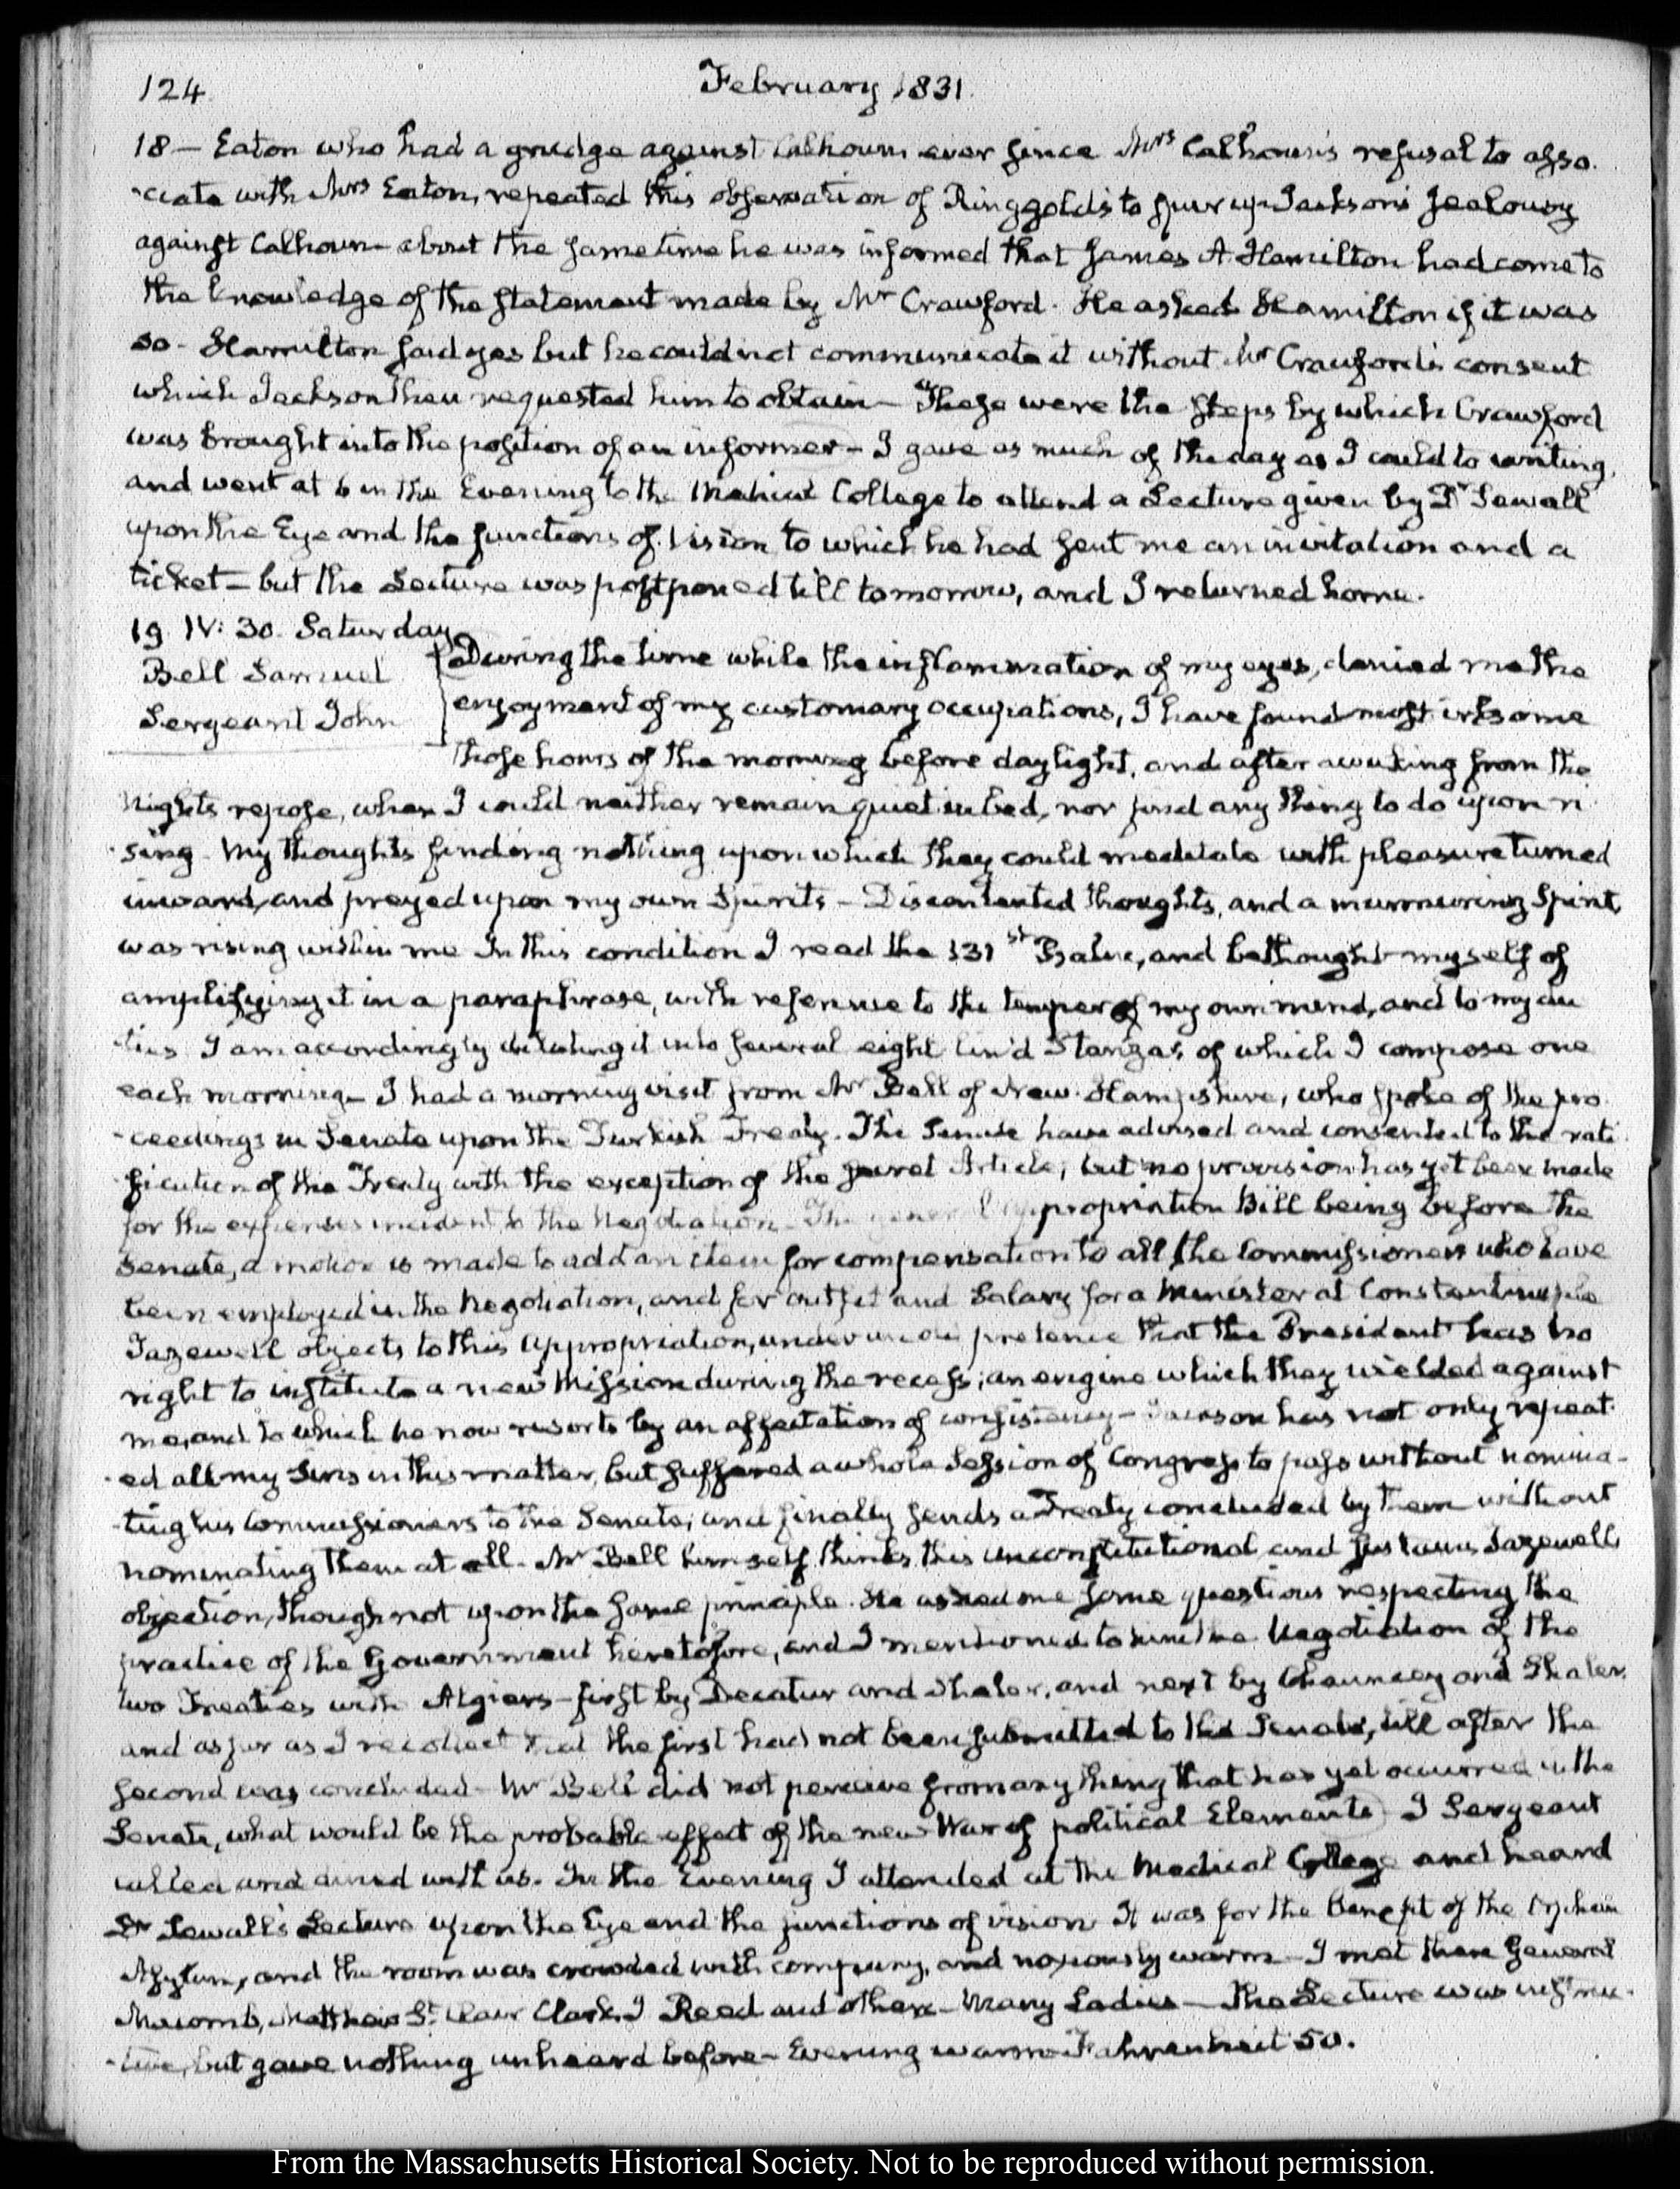 124.
February 1831.
18 — Eaton who had a grudge against Calhoun ever since Mrs Calhoun's refusal to asso-
-ciate with Mrs Eaton, repeated this observation of Ringgold's to spur up Jackson's jealousy
against Calhoun— about the same time he was informed that James A. Hamilton had come to
the knowledge of the statement made by Mr Crawford. He asked Hamilton if it was
so— Hamilton said yes but he could not communicate it without Mr Crawford's consent
which Jackson then requested him to obtain— These were the steps by which Crawford
was brought into the position of an informer— I gave as much of the day as I could to writing,
and went at 6 in the Evening to the Medical College to attend a Lecture given by Dr Sewall
upon the Eye and the functions of Vision to which he had sent me an invitation and a
ticket— but the Lecture was postponed till tomorrow, and I returned home.
19. IV: 30. Saturday
Bell Samuel
Sergeant John
During the time while the inflammation of my eyes, denied me the
enjoyment of my customary occupations, I have found most irksome
those hours of the morning before daylight, and after awaking from the
Nights repose, when I could neither remain quiet in bed, nor find any thing to do upon ri-
-sing. My thoughts finding nothing upon which they could meditate with pleasure turned
inward, and preyed upon my own Spirits— Discontented thoughts, and a murmuring Spirit,
was rising within me In this condition I read the 131st Psalm, and bethought myself of
amplifying it in a paraphrase, with reference to the temper of my own mind, and to my du
-ties I am accordingly dilating it into several eight lin'd Stanzas, of which I compose one
each morning— I had a morning visit from Mr Bell of New-Hampshire, who spoke of the pro-
-ceedings in Senate upon the Turkish Treaty. The Senate have advised and consented to the rati
-fication of the Treaty with the exception of the secret Article; but no provision has yet been made
for the expenses incident to the Negotiation— The general appropriation Bill being before the
Senate, a motion is made to add an item for compensation to all the Commissioners who have
been employed in the Negotiation, and for outfit and Salary for a Minister at Constantinople
Tazewell objects to this appropriation, under pretence that the President has no
right to institute a new Mission during the recess; an engine which they wielded against
me, and to which he now resorts by an affectation of consistency— Jackson has not only repeat-
-ed all my Sins in this matter, but suffered a whole Session of Congress to pass without nomina-
-ting his Commissioners to the Senate; and finally sends a Treaty concluded by them without
nominating them at all. Mr Bell himself thinks this unconstitutional and sustains Tazewell's
objection, though not upon the same principle. He asked me some questions respecting the
practice of the Government heretofore, and I mentioned to him the Negotiation of the
two Treaties with Algiers— first by Decatur and Shaler, and next by Chauncey and Shaler.
and as far as I recollect that the first had not been submitted to the Senate, till after the
second was concluded— Mr Bell did not perceive from any thing that has yet occurred in the
Senate, what would be the probable effect of the new War of political Elements J Sergeant
called and dined with us. In the Evening I attended at the Medical College and heard
Dr Sewall's Lecture upon the Eye and the functions of vision It was for the benefit of the Orphan
Asylum, and the room was crowded with company, and noxiously warm— I met there General
Macomb, Matthew St. Clair Clarke, J Reed and others— Many Ladies— The Lecture was instruc-
-tive, but gave nothing unheard before— Evening warm Fahrenheit 50.
From the Massachusetts Historical Society. Not to be reproduced without permission.